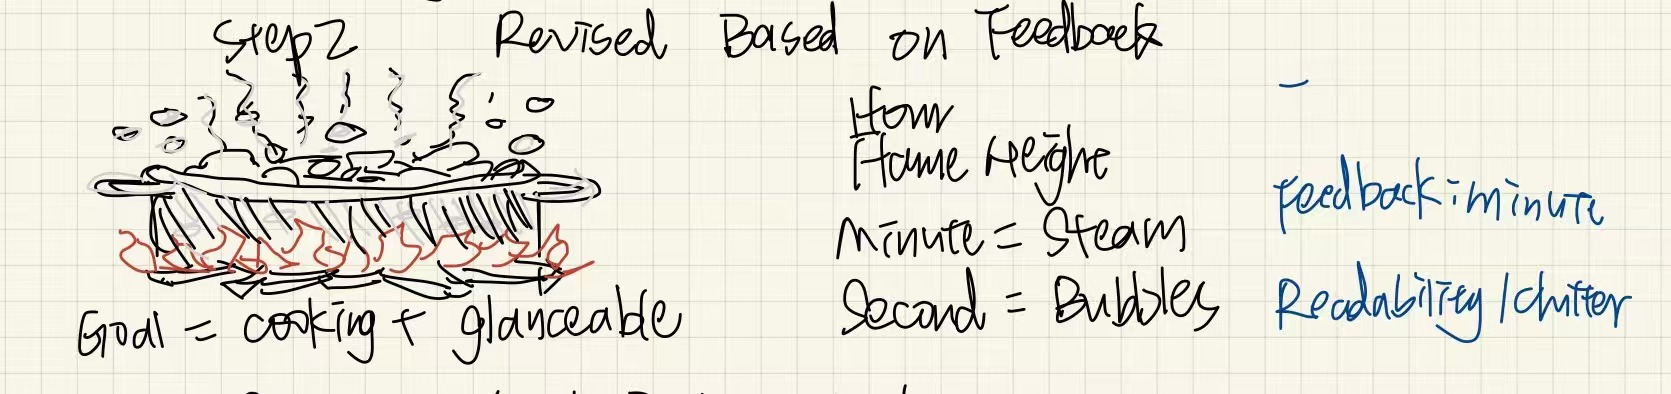 Step 2 Revised Based on Feedback
Hour
Flame Height
Minute = Steam
Second = Bubbles
Goal = cooking + glanceable
Feedback: minute
Readability / clutter